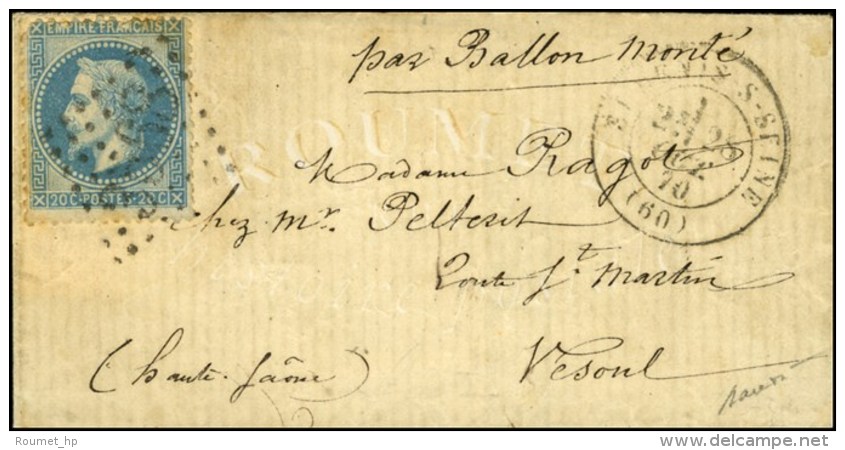 EMPIRE FRANÇAIS
20 C·POSTES·20 C
par Ballon Monté
S-SEINE
70
(60)
ROUMET
Madame Ragot
Chez Mr. Pelterit
Route St. Martin
Vésoul
(haute-Saône)
Roumet_hp
www.delcampe.net